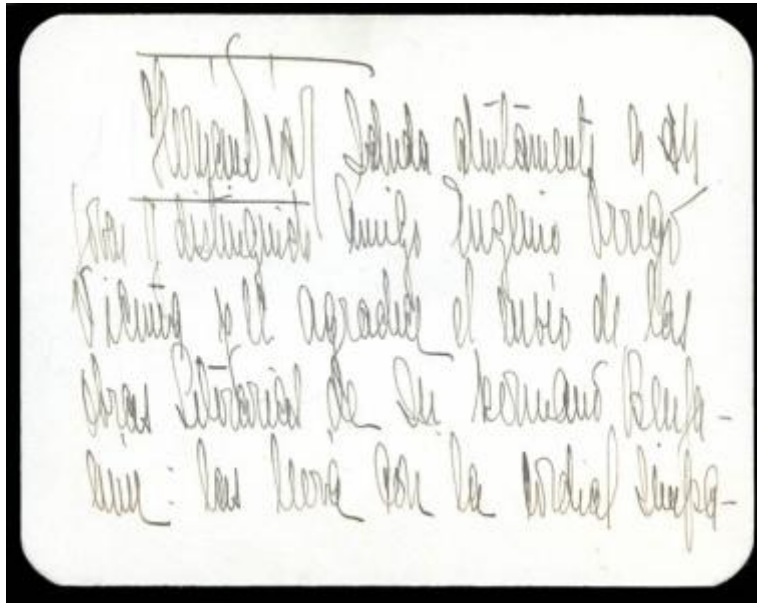 saluda atentamente a su
gran y distinguido amigo Eugenio Orrego
Vicuña y le agradece el envío de las
obras literarias de su hermano Benja-
mín: las leerá con la cordial simpa-